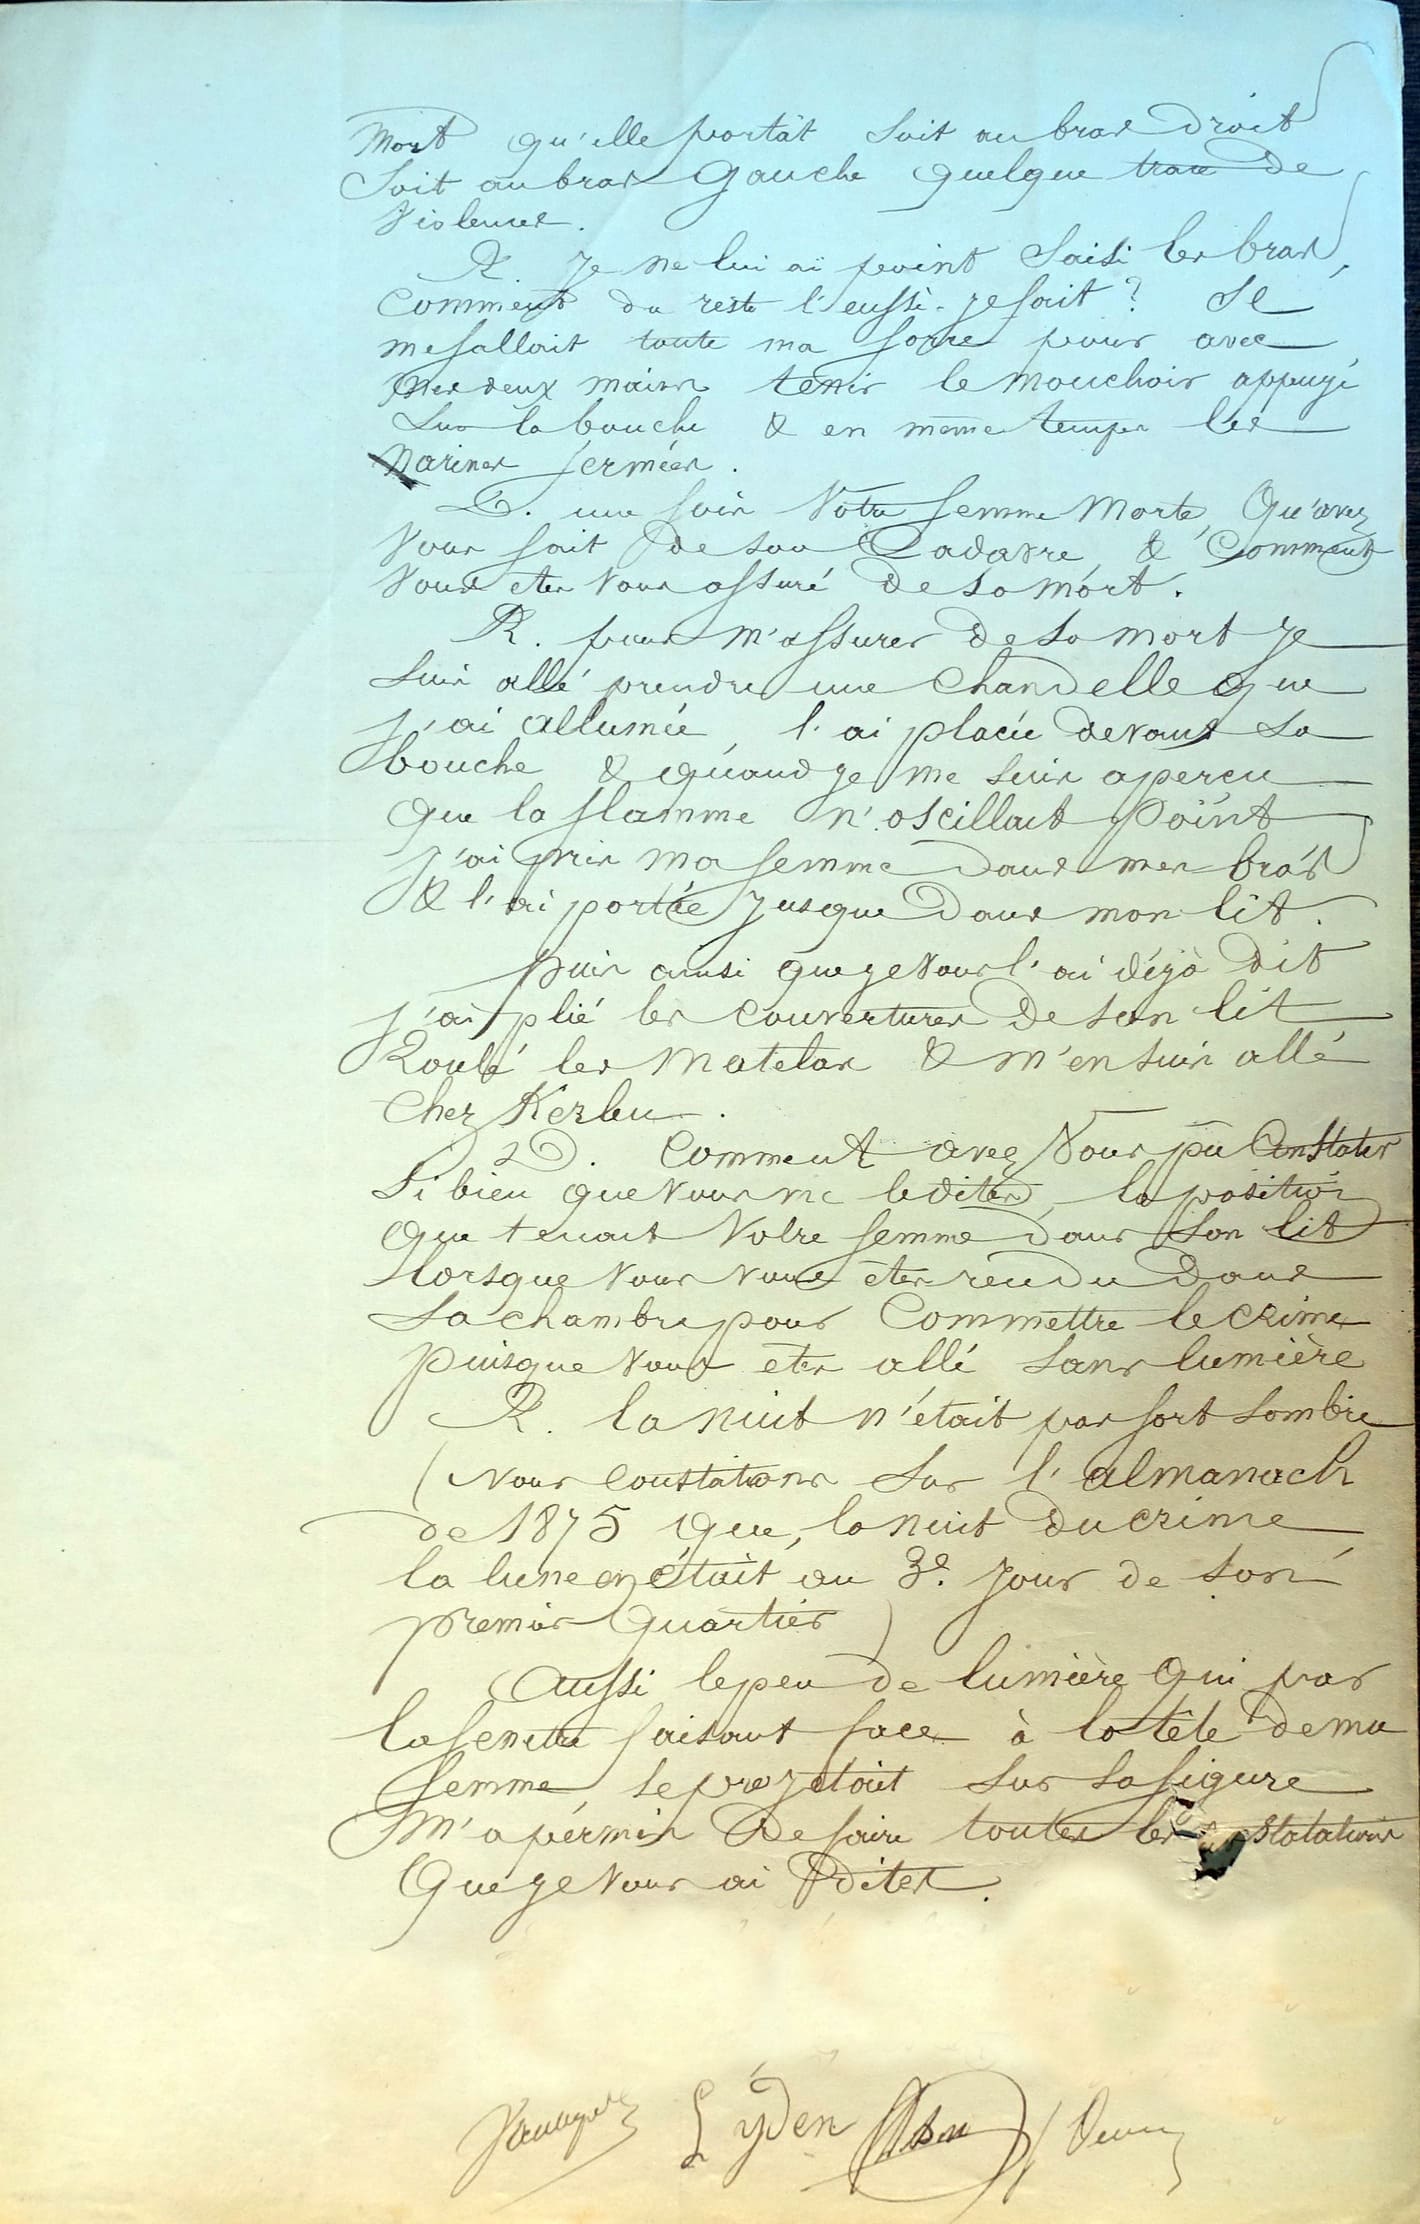 Mort qu'elle portât soit au bras droit
soit au bras gauche quelque trace de
violences.
R. Je ne lui ai point saisi les bras,
comment du reste l'eussè-je fait ? Il
me fallait toute ma force pour avec
mes deux mains tenir le mouchoir appuyé
sur la bouche & en même temps les
narines fermées.
D. une fois votre femme morte, qu'avez
vous fait de son cadavre & comment
vous etes vous assuré de sa mort.
R. pour m'assurer de sa mort je
suis allé prendre une chandelle que
j'ai allumée, l'ai placée devant sa
bouche & quand je me suis aperçu
que la flamme n'oscillait point
j'ai pris ma femme dans mes bras
& l'ai portée jusque dans mon lit.
puis ainsi que je vous l'ai déjà dit
j'ai plié les couvertures de son lit
roulé les matelas & m'en suis allé
chez Kerleu.
D. Comment avez vous pu constater
si bien que vous me le dites, la position
que tenait votre femme dans son lit
lorsque vous vous êtes rendu dans
sa chambre pour commettre le crime
puisque vous etes allé sans lumière
R. la nuit n'était pas fort sombre
(nous constatons sur l'almanach
de 1875 que, la nuit du crime
la lune en était au 3e. jour de son
premier quartier)
Aussi le peu de lumière qui par
la fenetre faisant face à la tête de ma
femme, se projetait sur sa figure
m'a permis de faire toutes les constatations
que je vous ai dites.
Lÿden